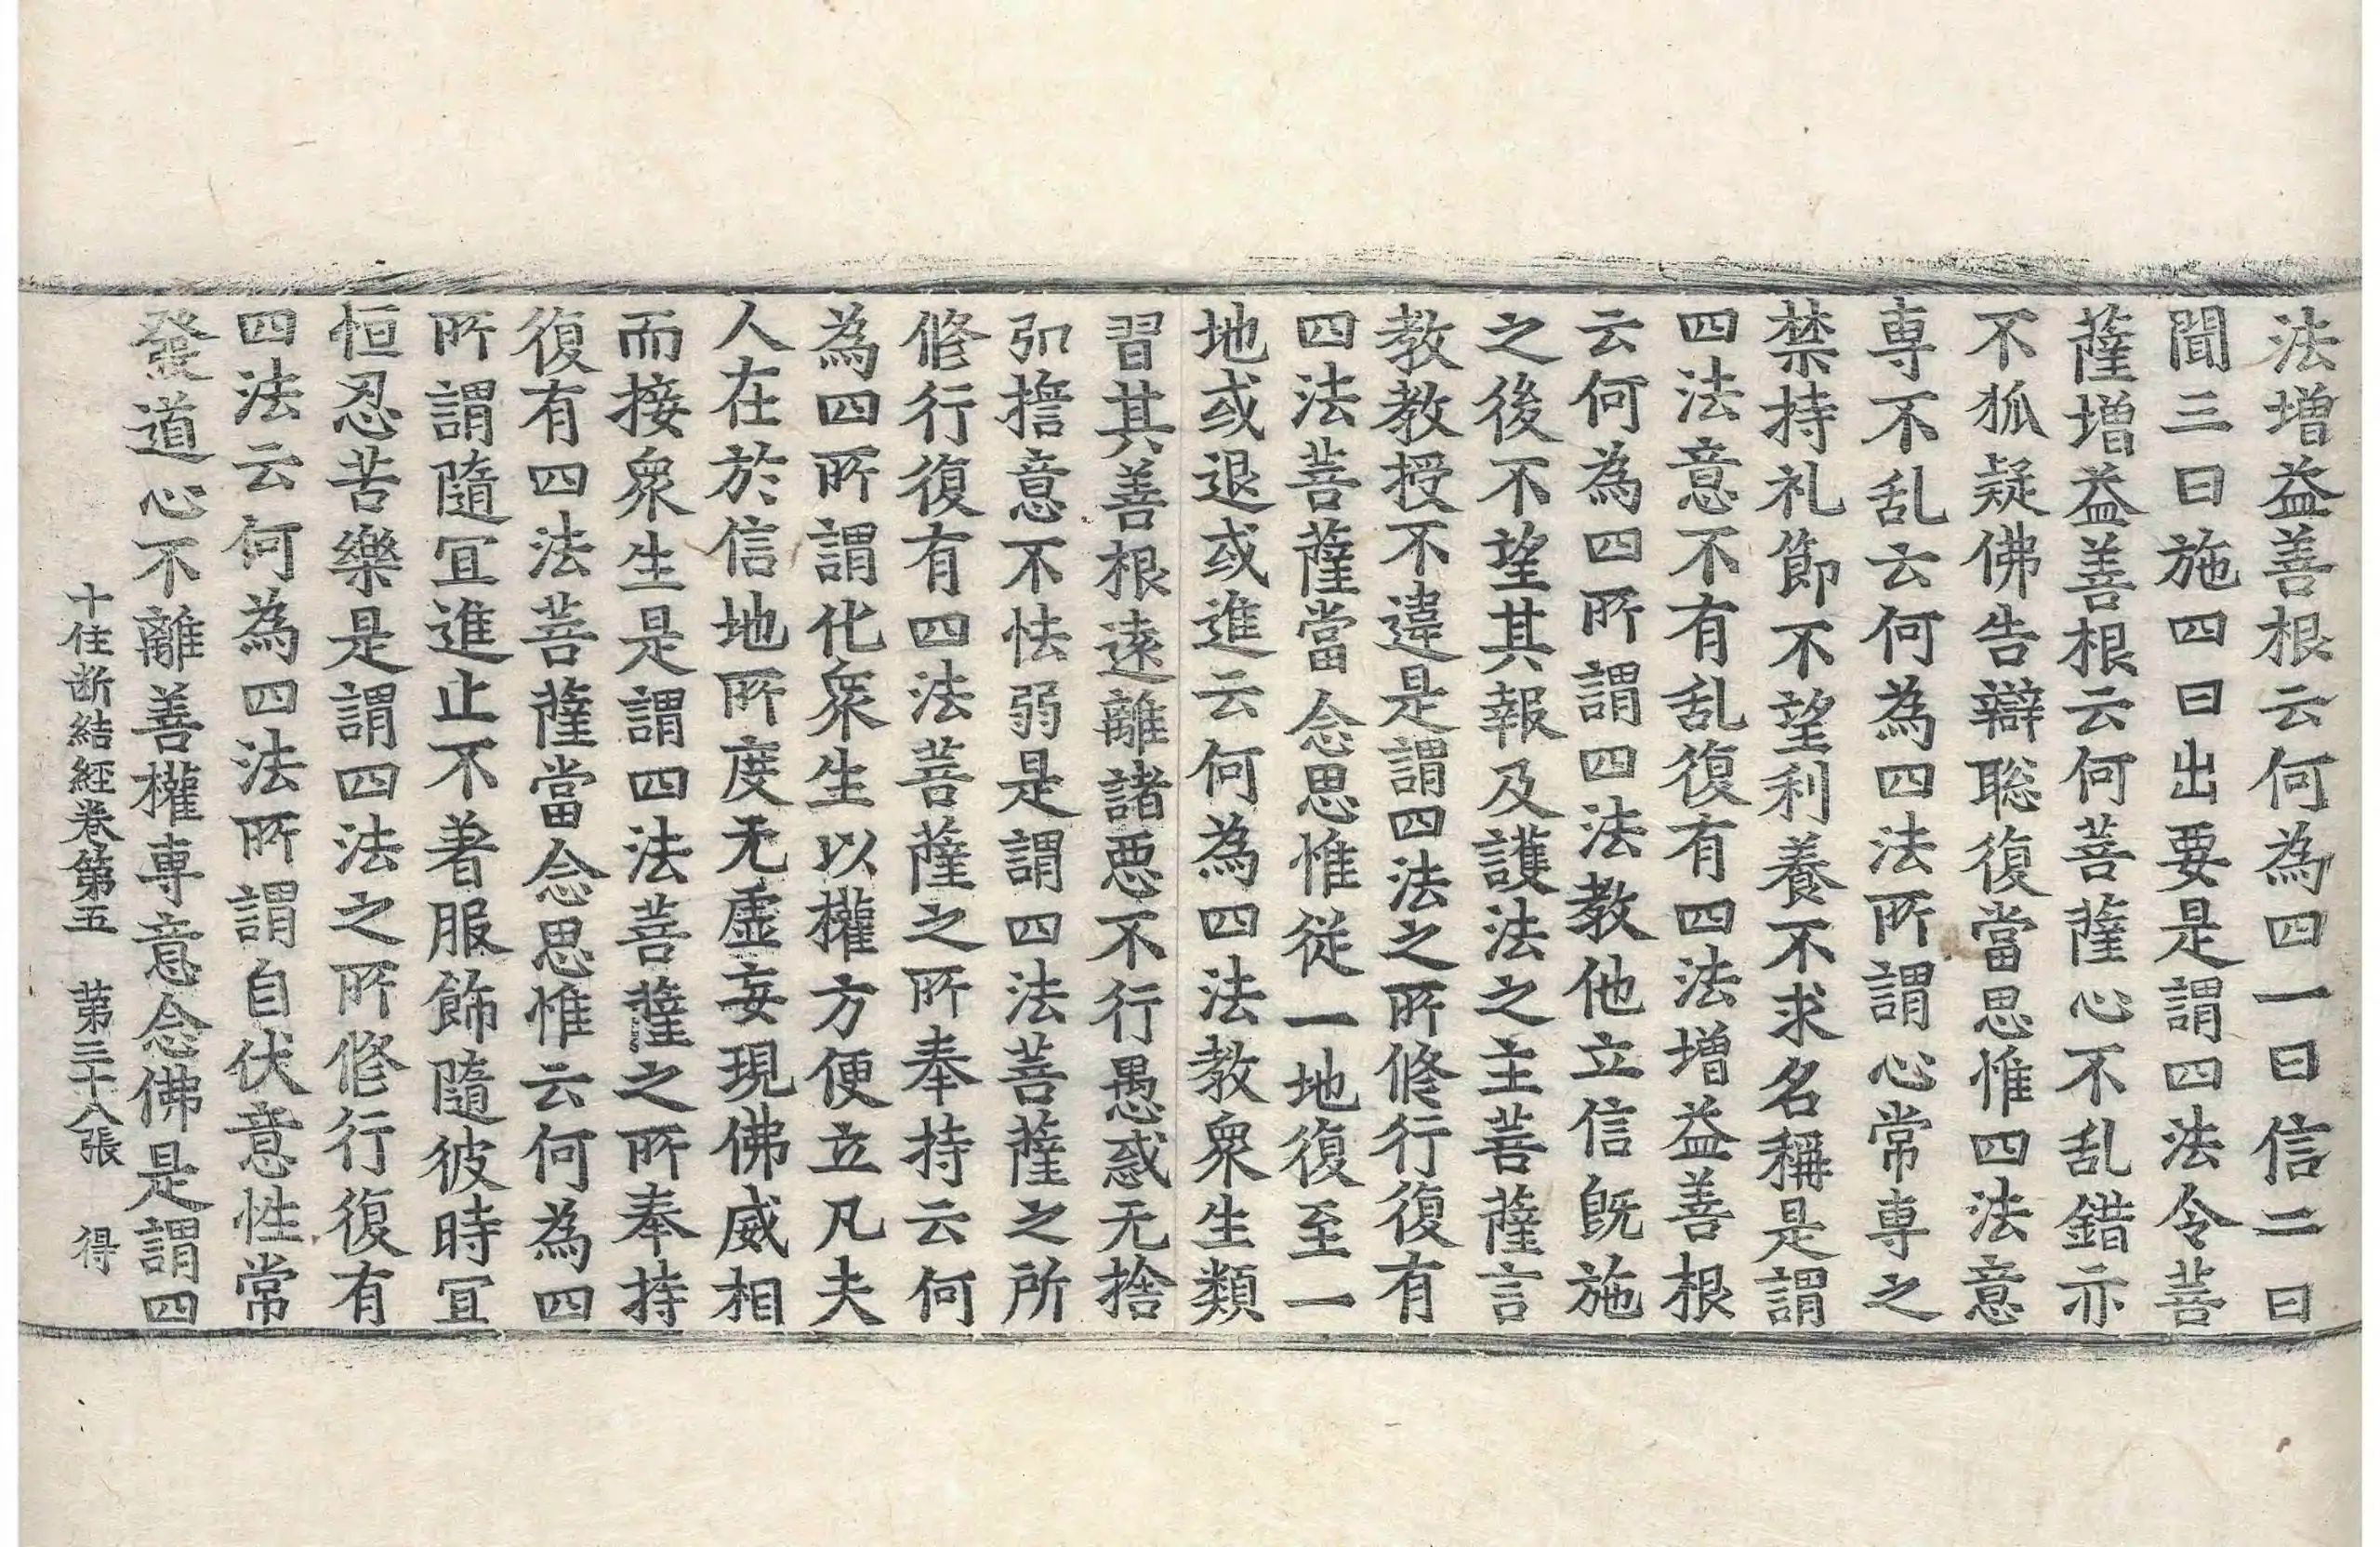 法增益善根云何為四一曰信二曰
聞三曰施四曰出要是謂四法令菩
薩增益善根云何菩薩心不乱錯亦
不狐疑佛告辯聡復當思惟四法意
専不乱云何為四法所謂心常専之
禁持礼節不望利養不求名稱是謂
四法意不有乱復有四法增益善根
云何為四所謂四法教他立信既施
之後不望其報及護法之主菩薩言
教教授不違是謂四法之所修行復有
四法菩薩當念思惟從一地復至一
地或退或進云何為四法教衆生類
習其善根遠離諸惡不行愚惑无捨
弘擔意不怯弱是謂四法菩薩之所
修行復有四法菩薩之所奉持云何
為四所謂化衆生以權方便立凡夫
人在於信地所度无虛妄現佛威相
而接衆生是謂四法菩薩之所奉持
復有四法菩薩當念思惟云何為四
所謂隨冝進止不著服飾隨彼時冝
恒忍苦樂是謂四法之所修行復有
四法云何為四法所謂自伏意性常
發道心不離善權専意念佛是謂四
十住断結經卷第五 第三十八張 得